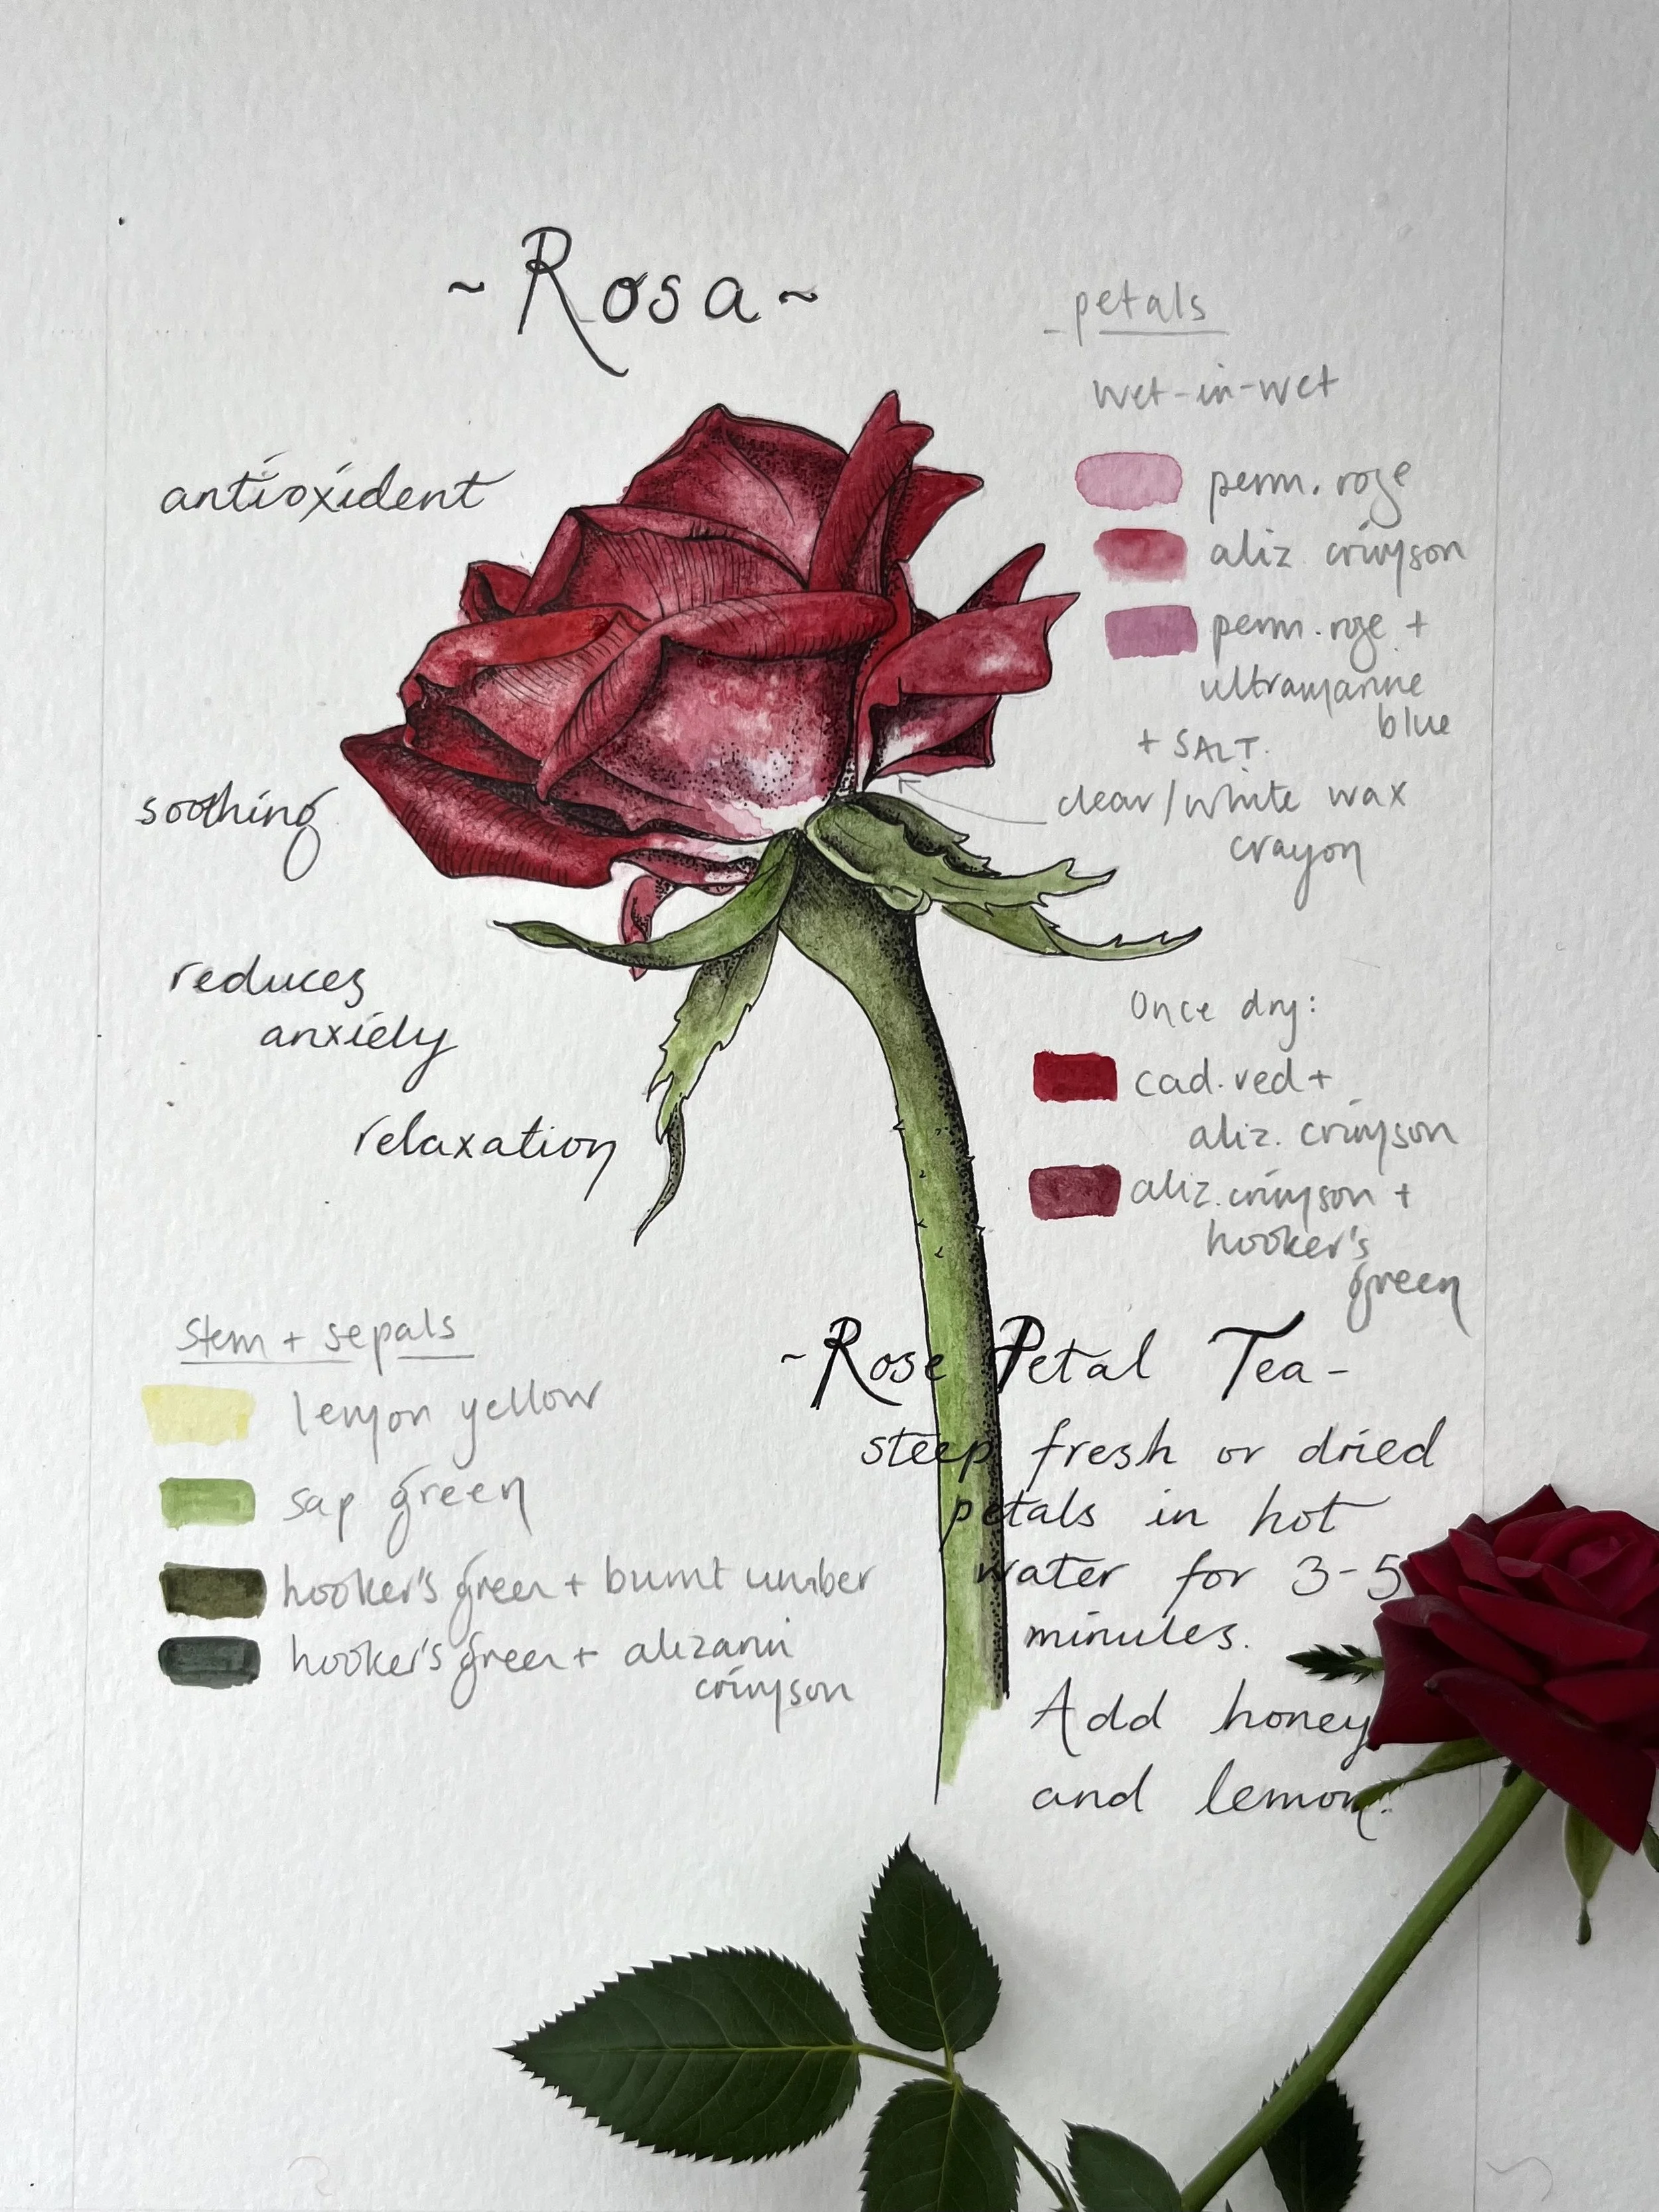 ~Rosa~
antioxident
soothing
reduces
anxiety
relaxation
petals
wet-in-wet
perm. rose
aliz crimson
perm. rose +
ultramarine
blue
+ SALT.
clear/white wax
crayon
Once dry:
cad. red +
aliz. crimson
aliz. crimson +
hooker's
green
stem + sepals
lemon yellow
sap green
hooker's green + burnt umber
hooker's green + alizarin
crimson
~Rose Petal Tea-
steep fresh or dried
petals in hot
water for 3-5
minutes.
Add honey
and lemon.